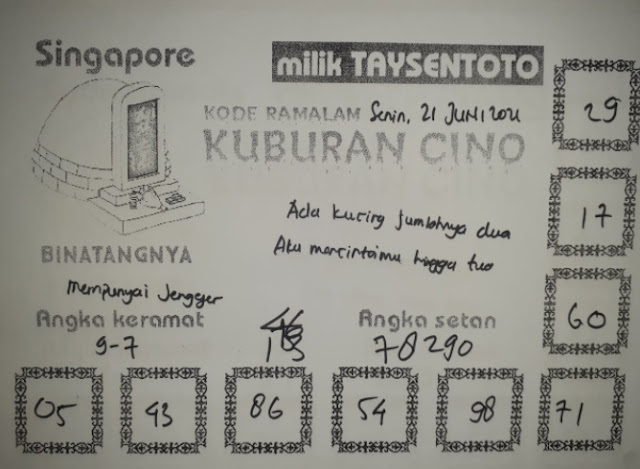 Singapore
milik TAYSENTOTO
KODE RAMALAM Senin, 21 JUNI 2021
KUBURAN CINO
29
17
60
Ada kucing jumlahnya dua
Aku mencintaimu hingga tua
BINATANGNYA
Mempunyai Jengger
Angka keramat
9-7
Angka setan
78290
05
93
86
54
98
71